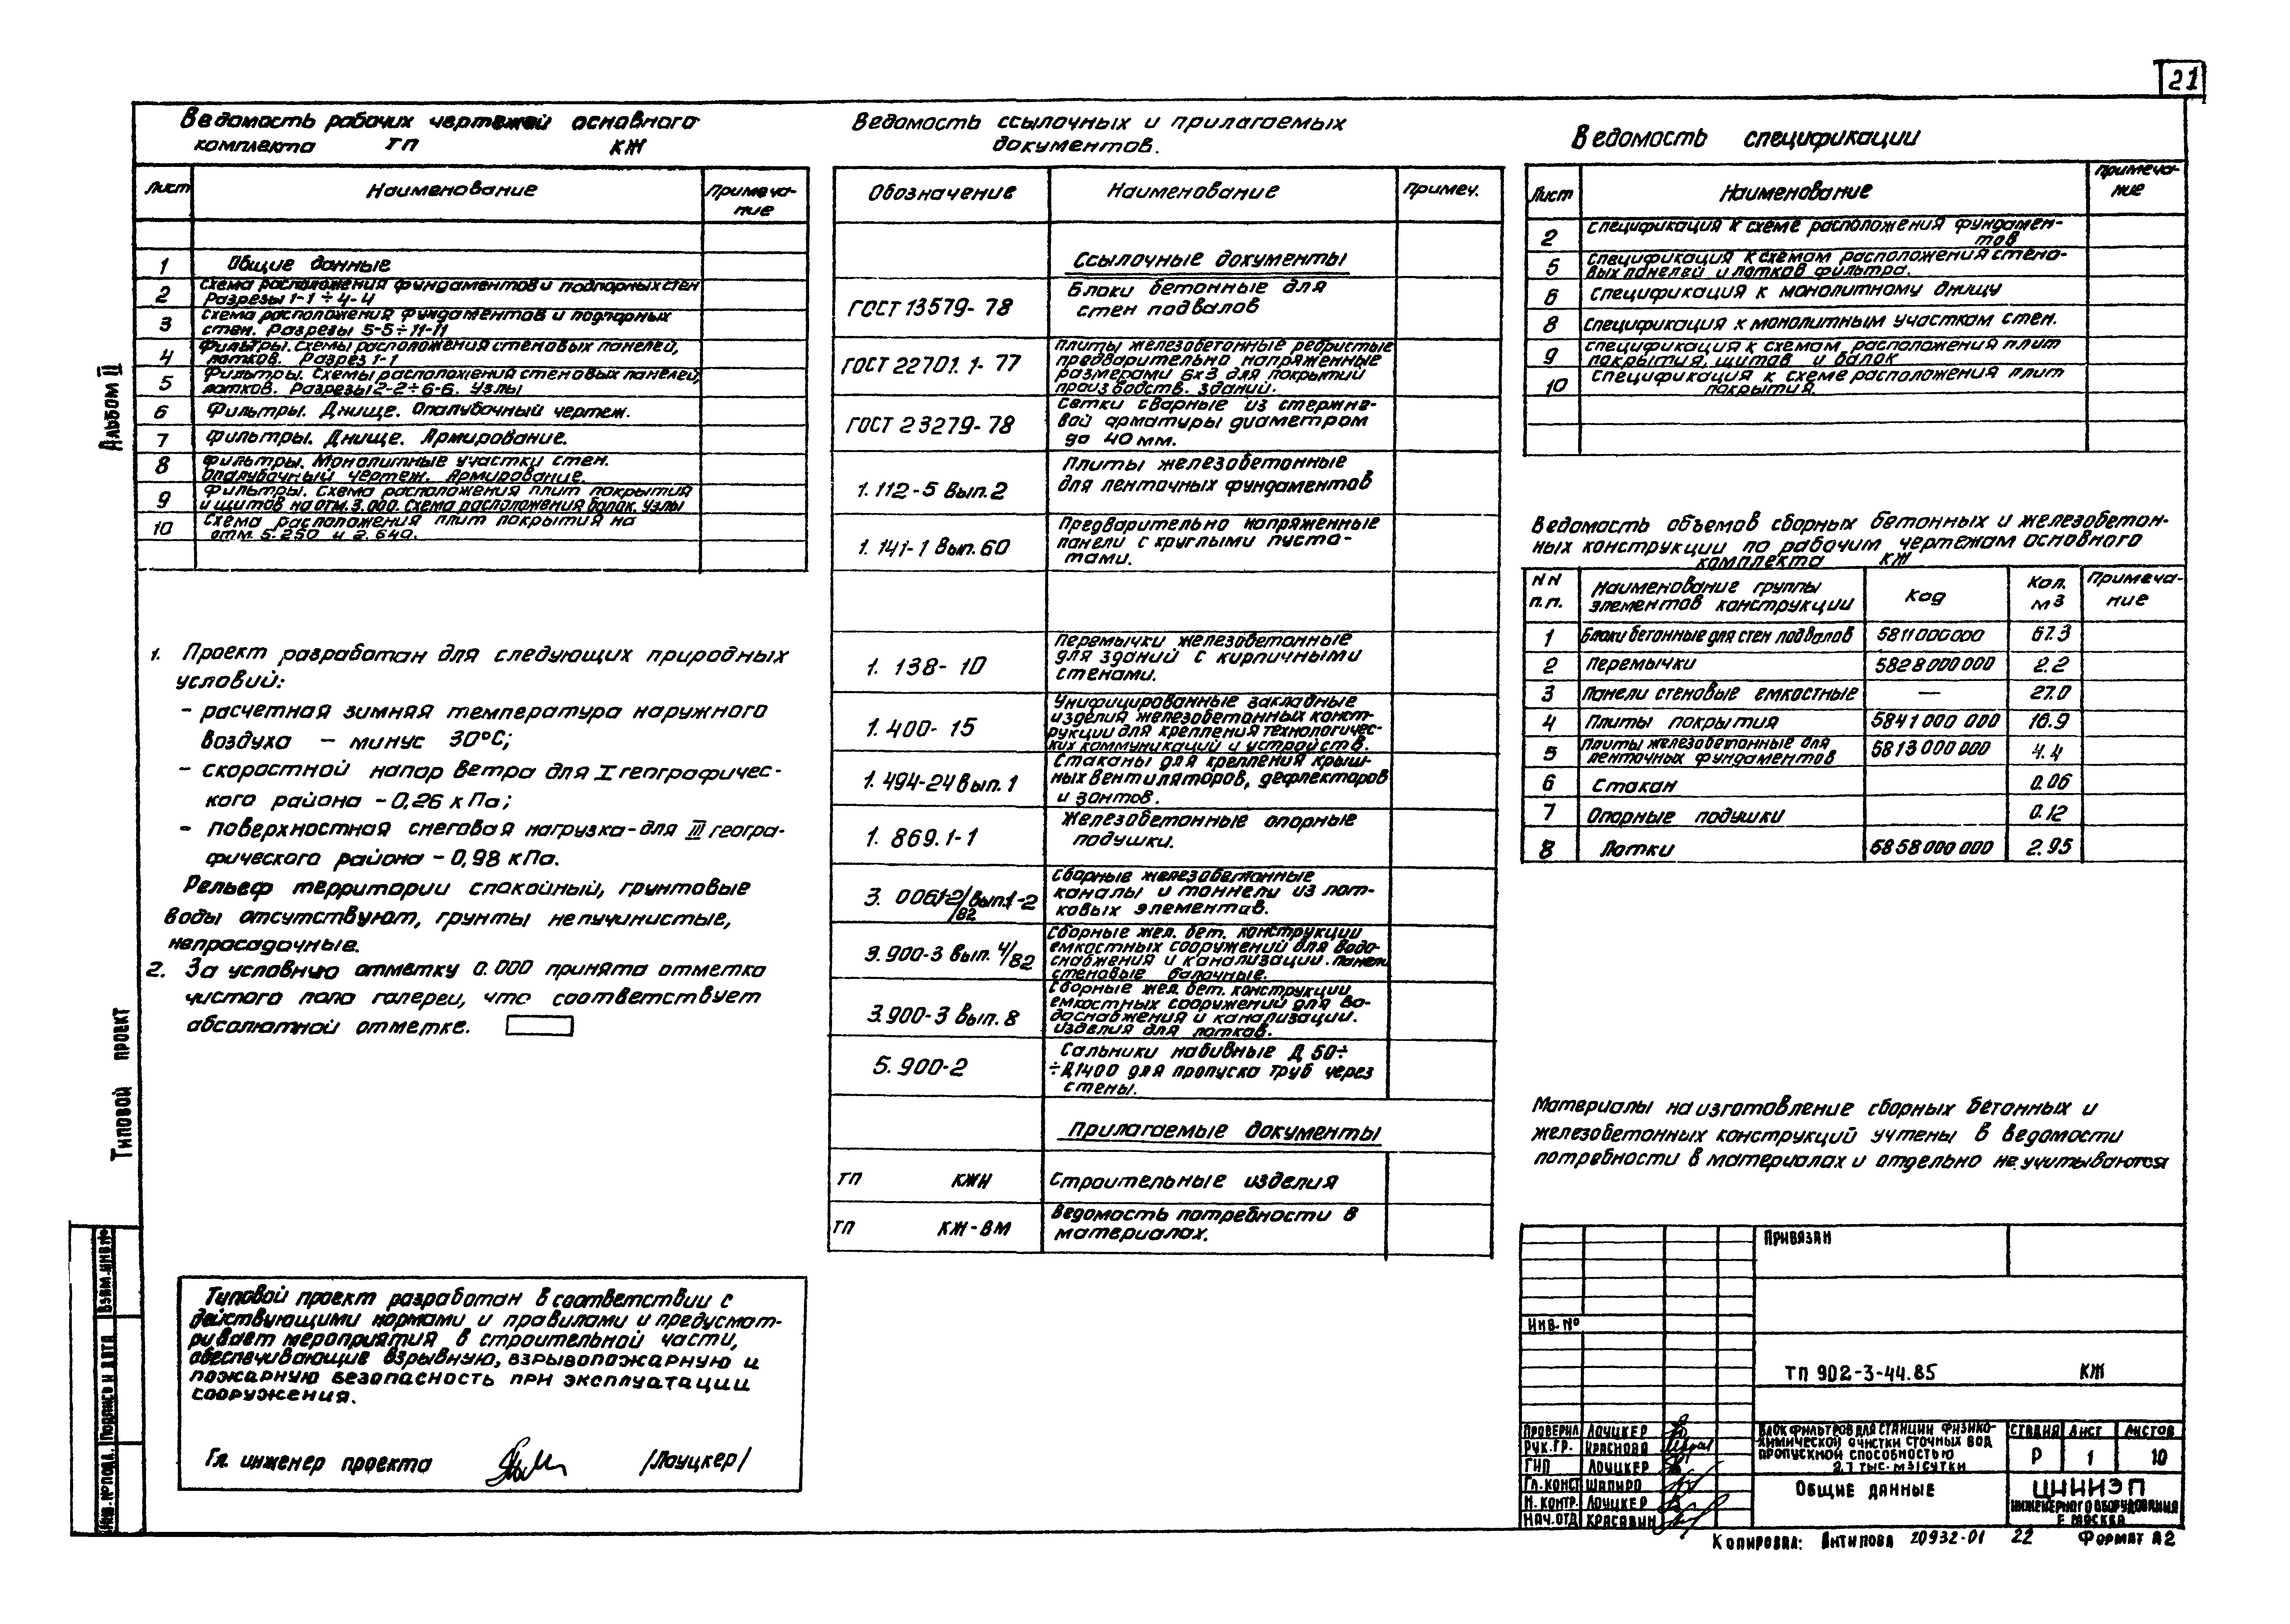 21
Ведомость рабочих чертежей основного
комплекта ТП КЖ
Лист Наименование Примеча-
ние
1 Общие данные
2 Схема расположения фундаментов и подпорных стен
Разрезы 1-1 ÷ 4-4
3 Схема расположения фундаментов и подпорных
стен. Разрезы 5-5 ÷ 11-11
4 Фильтры. Схемы расположения стеновых панелей,
лотков. Разрез 1-1
5 Фильтры. Схемы расположения стеновых панелей,
лотков. Разрезы 2-2 ÷ 6-6. Узлы
6 Фильтры. Днище. Опалубочный чертеж.
7 Фильтры. Днище. Армирование.
8 Фильтры. Монолитные участки стен.
Опалубочный чертеж. Армирование.
9 Фильтры. Схема расположения плит покрытия
и щитов на отм. 3.000. Схема расположения балок. Узлы
10 Схема расположения плит покрытия на
отм. 5.250 и 2.640.
1. Проект разработан для следующих природных
условий:
- расчетная зимняя температура наружного
воздуха – минус 30°С;
- скоростной напор ветра для I географичес-
кого района - 0,26 кПа;
- поверхностная снеговая нагрузка - для III геогра-
фического района - 0,98 кПа.
Рельеф территории спокойный, грунтовые
воды отсутствуют, грунты непучинистые,
непросадочные.
2. За условную отметку 0.000 принята отметка
чистого пола галереи, что соответствует
абсолютной отметке.
Типовой проект разработан в соответствии с
действующими нормами и правилами и предусмат-
ривает мероприятия в строительной части,
обеспечивающие взрывную, взрывопожарную и
пожарную безопасность при эксплуатации
сооружения.
Гл. инженер проекта /Лоуцкер/
Альбом II
Типовой проект
Взам. инв. №
Подпись и дата
Инв. № подл.
Ведомость ссылочных и прилагаемых
документов.
Обозначение Наименование Примеч.
Ссылочные документы
ГОСТ 13579-78 Блоки бетонные для
стен подвалов
ГОСТ 22701.1-77 Плиты железобетонные ребристые
предварительно напряженные
размерами 6х3 для покрытий
производств. зданий.
ГОСТ 23279-78 Сетки сварные из стержне-
вой арматуры диаметром
до 40 мм.
1.112-5 Вып.2 Плиты железобетонные
для ленточных фундаментов
1.141-1 Вып.60 Предварительно напряженные
панели с круглыми пусто-
тами.
1.138-10 Перемычки железобетонные
для зданий с кирпичными
стенами.
1.400-15 Унифицированные закладные
изделия железобетонных конст-
рукции для крепления технологичес-
ких коммуникаций и устройств.
1.494-24 вып.1 Стаканы для крепления крыш-
ных вентиляторов, дефлекторов
и зонтов.
1.869.1-1 Железобетонные опорные
подушки.
3.006.1-2/82 вып.1-2 Сборные железобетонные
каналы и тоннели из лот-
ковых элементов.
3.900-3 Вып. 4/82 Сборные жел. бет. конструкции
емкостных сооружений для водо-
снабжения и канализации. Панели
стеновые балочные.
3.900-3 Вып. 8 Сборные жел. бет. конструкции
емкостных сооружений для во-
доснабжения и канализации.
Изделия для лотков.
5.900-2 Сальники набивные Д 50 ÷
÷ Д1400 для пропуска труб через
стены.
Прилагаемые документы
ТП КЖН Строительные изделия
ТП КЖ-ВМ Ведомость потребности в
материалах.
Ведомость спецификации
Лист Наименование Примеча-
ние
2 Спецификация к схеме расположения фундамен-
тов
5 Спецификация к схемам расположения стено-
вых панелей и лотков фильтра.
6 Спецификация к монолитному днищу
8 Спецификация к монолитным участкам стен.
9 Спецификация к схемам расположения плит
покрытия, щитов и балок
10 Спецификация к схеме расположения плит
покрытия.
Ведомость объемов сборных бетонных и железобетон-
ных конструкции по рабочим чертежам основного
комплекта КЖ
NN
п.п. Наименование группы
элементов конструкции Код Кол.
м3 Примеча-
ние
1 Блоки бетонные для стен подвалов 5811000000 67.3
2 Перемычки 5828000000 2.2
3 Панели стеновые емкостные — 27.0
4 Плиты покрытия 5841000000 16.9
5 Плиты железобетонные для
ленточных фундаментов 5813000000 4.4
6 Стакан 0.06
7 Опорные подушки 0.12
8 Лотки 5858000000 2.95
Материалы на изготовление сборных бетонных и
железобетонных конструкций учтены в ведомости
потребности в материалах и отдельно не учитываются
Привязан
Инв. №
ТП 902-3-44.85 КЖ
Проверил Лоуцкер
Рук. гр. Краснова
ГИП Лоуцкер
Гл. конст Шапиро
Н. контр. Лоуцкер
Нач. отд Красавин
Блок фильтров для станции физико-
химической очистки сточных вод
пропускной способностью
2,7 тыс. м3/сутки
Стадия Лист Листов
Р 1 10
Общие данные
ЦНИИЭП
инженерного оборудования
г. Москва
Копировал: Антипова 20932-01 22 Формат А2